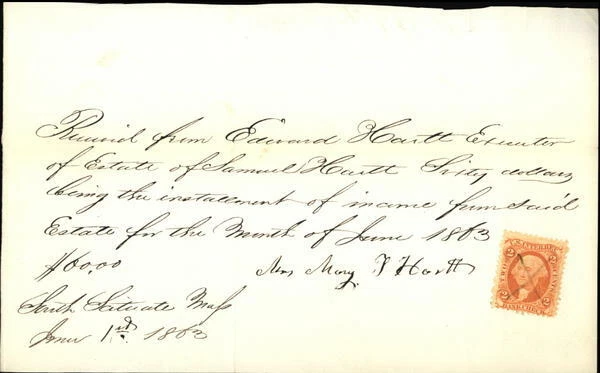 Received from Edward Hartt Executor
of Estate of Samuel Hartt Sixty dollars
being the installment of income from said
Estate for the Month of June 1863
$60.00
Mrs Mary Hartt
South Scituate Mass
June 1st 1863
U.S. INTER. REV.
2
2
BANK CHECK